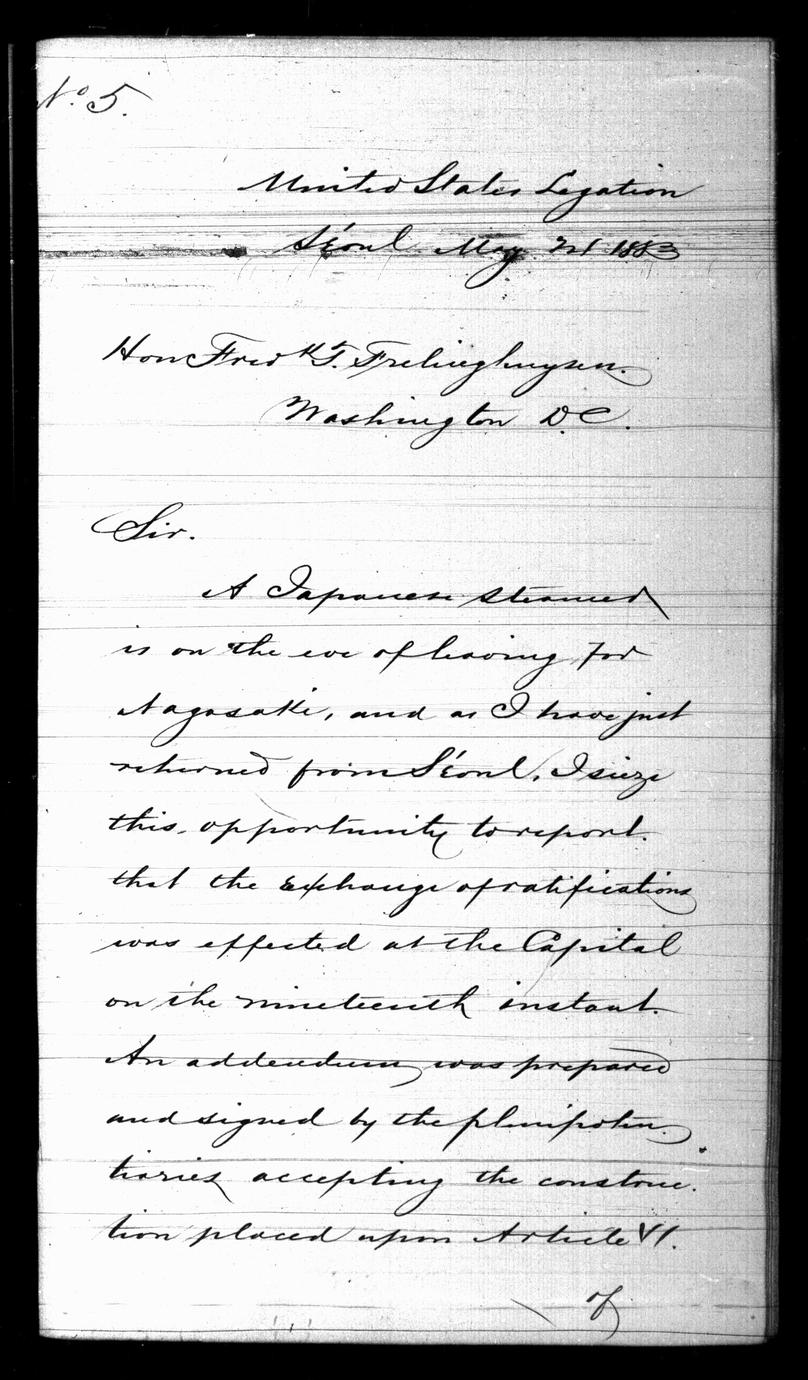 No. 5.
United States Legation
Séoul May 21 1883
Hon Fredk T. Frelinghuysen.
Washington D.C.
Sir.
A Japanese steamer
is on the eve of leaving for
Nagasaki, and as I have just
returned from Séoul, I sieze
this opportunity to report
that the exchange of ratifications
was effected at the Capital
on the nineteenth instant.
An addendum was prepared
and signed by the plenipoten-
tiaries accepting the construc-
tion placed upon Article VI.
of